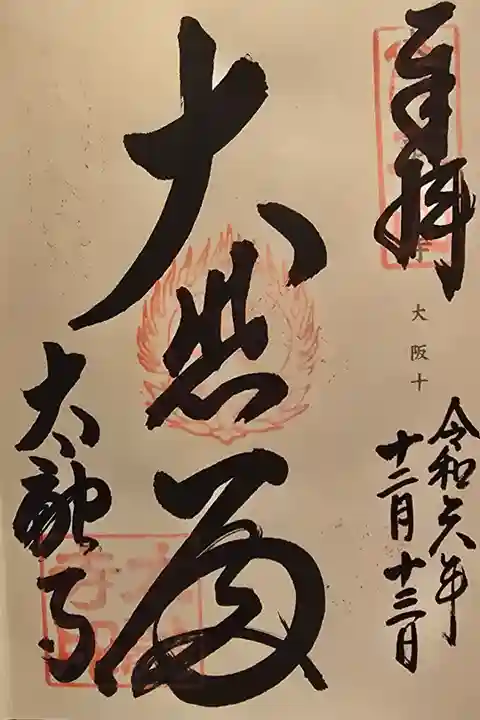 奉拝
大阪十
令和六年
十二月十三日
大悲
太融寺
太融寺印